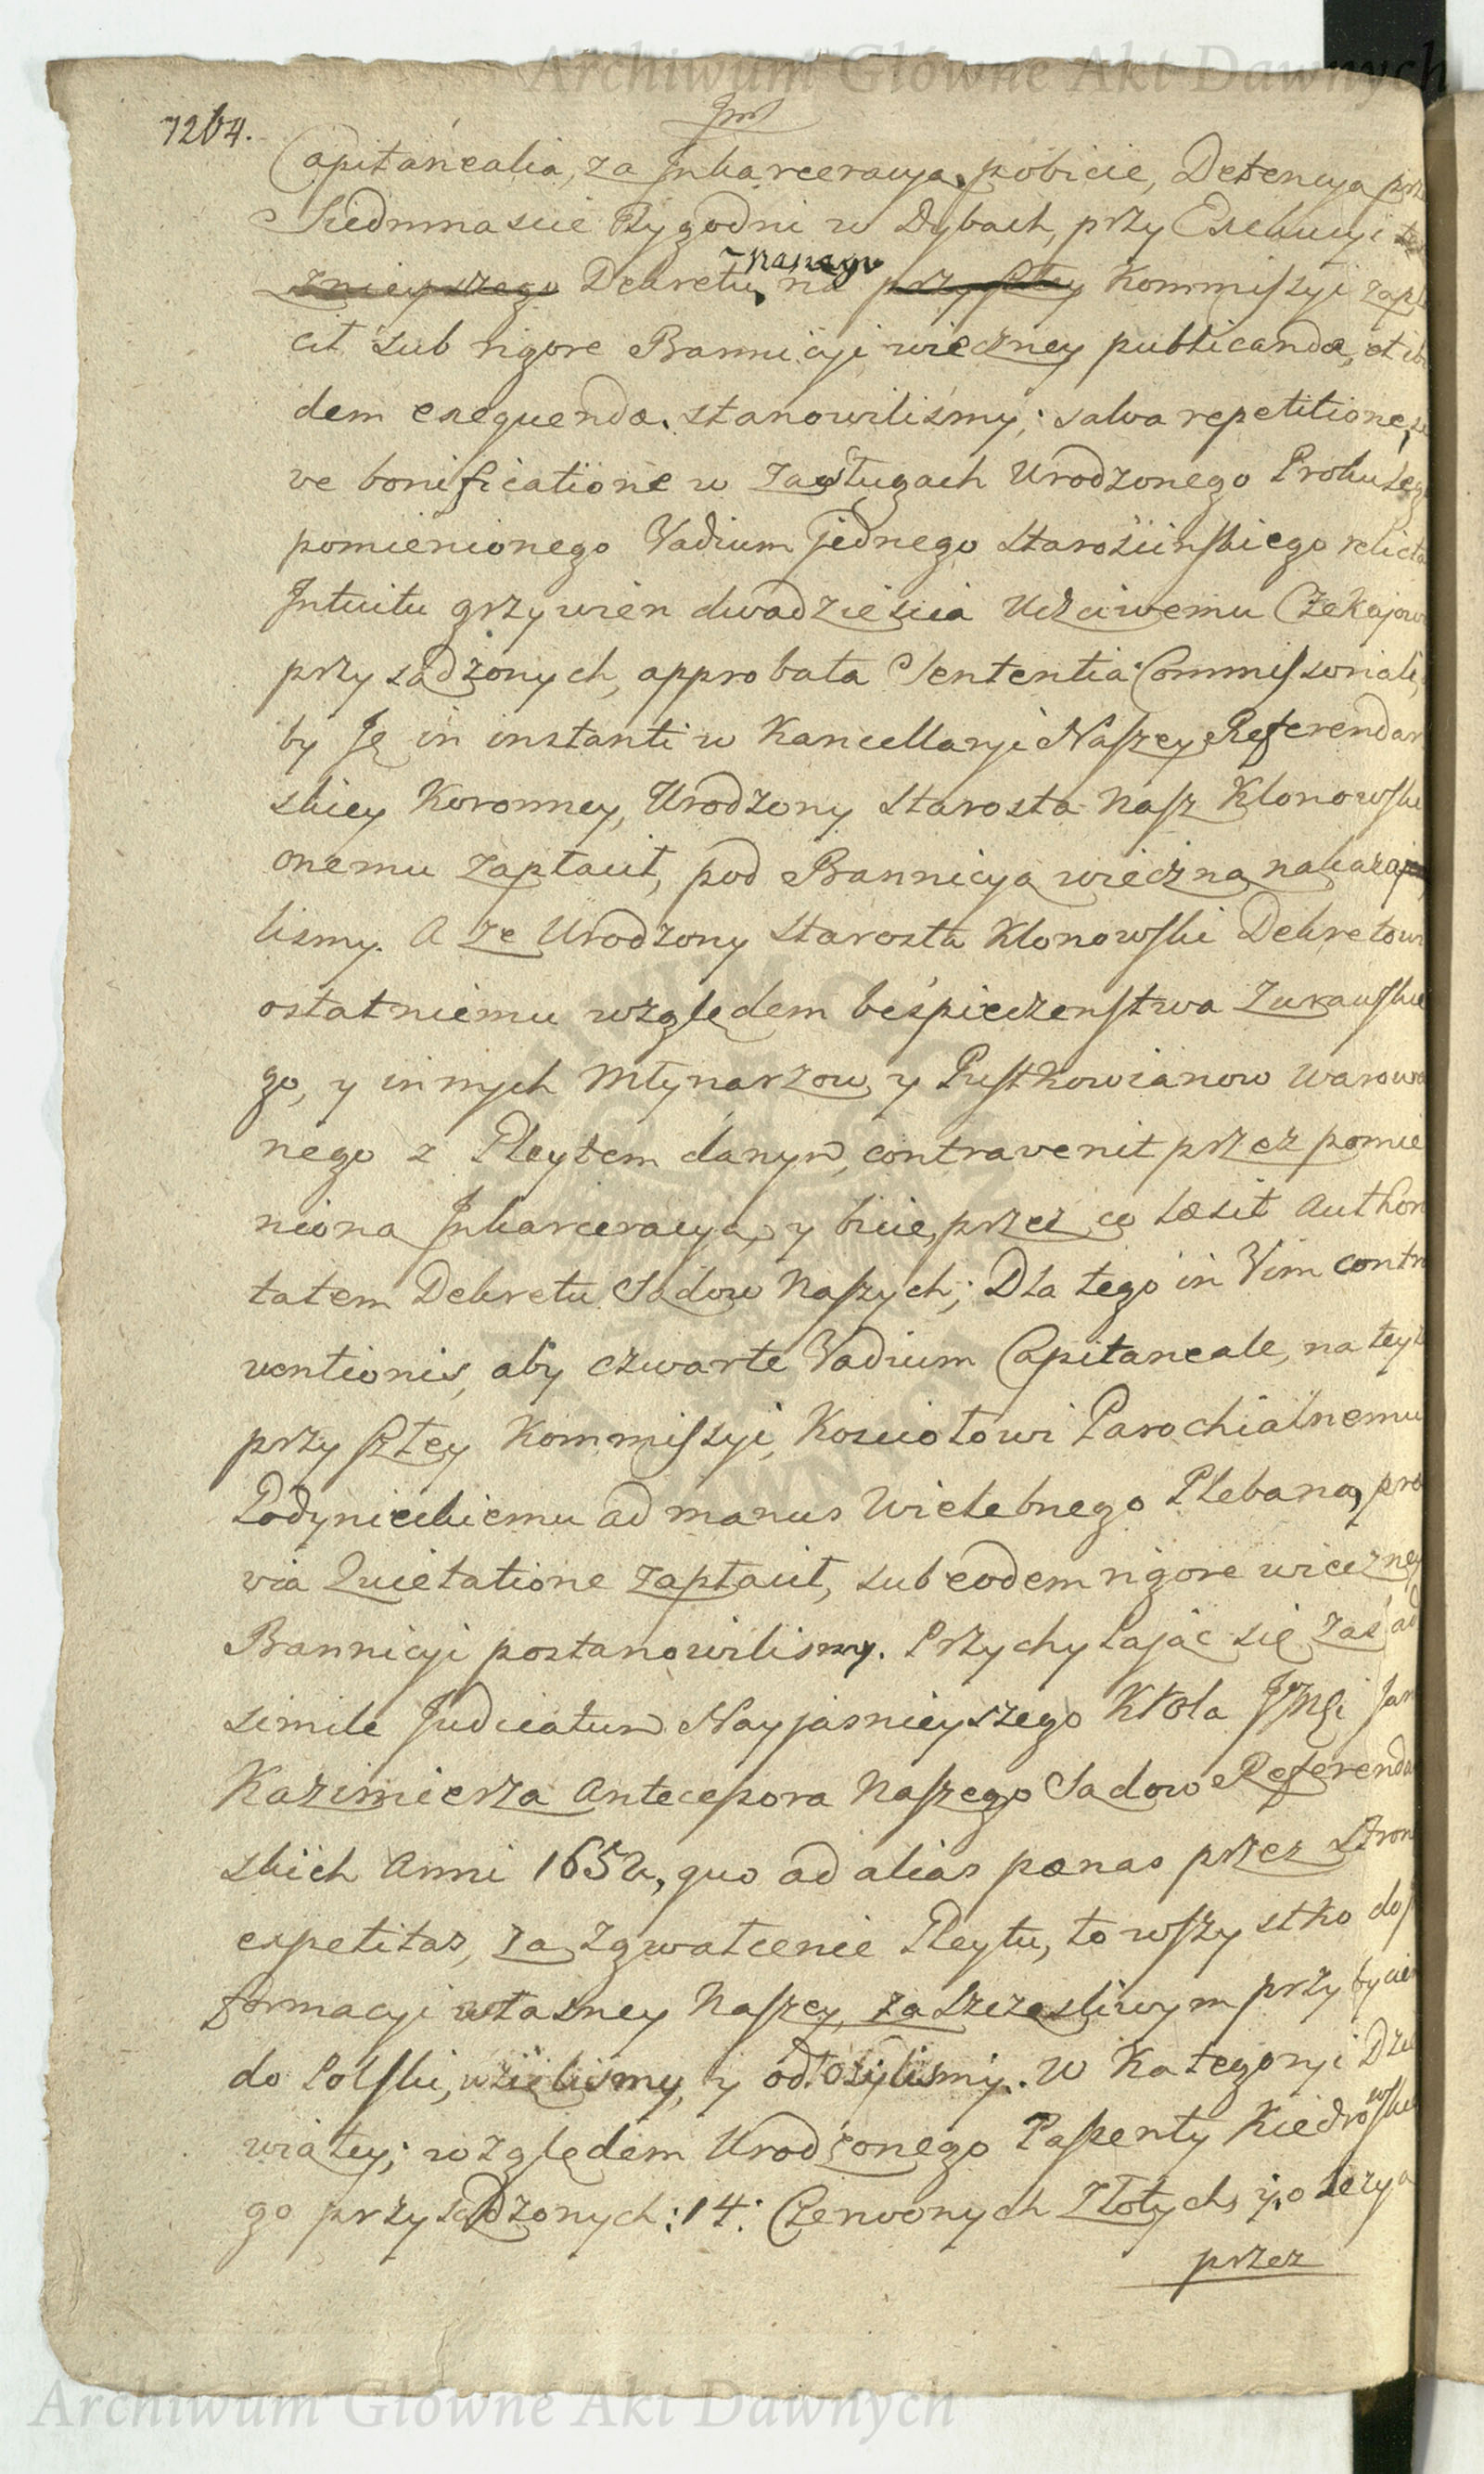 Archiwum Główne Akt Dawnych
7264.
Capitanealia, za Inkarceracyą, pobicie, Detencyą prz
Siedmnascie Tygodni w Dybach, przy Exekucyi
znieyszego Dekretu, na przyszłey Kommissyi zapła
cił sub rigore Bannicyi wieczney publicandæ, et ibi
dem exequendæ. stanowiliśmy; salva repetitione, si
ve bonificatione w zasługach Urodzonego Prokulego
pomienionego Vadium jednego Starościnskiego relicta
Intuitu grzywien dwadzieścia Uczciwemu Czekajow
przysądzonych, approbata Sententia Commissoriali,
by Ję in instanti w Kancellaryi Naszey Referendar
skiey Koronney, Urodzony Starosta Nasz Klonowski
onemu zapłacił, pod Bannicyą wieczną nakaza
liśmy. A ze Urodzony Starosta Klonowski Dekretowi
ostatniemu względem bespieczenstwa Zukawskie
go, y innych Młynarzow y Pustkowianow warowa
nego z Pleytem danym, contravenit przez pomie
nioną Inkarceracyą, y bicie, przez co læsit Authori
tatem Dekretu Sądow Naszych; Dla tego in Vim contra
ventionis, aby czwarte Vadium Capitaneale, na teyż
przyszłey Kommissyi, Kosciołowi Parochialnemu
Łodynieckiemu ad manus Wielebnego Plebana, præ
via Quietatione zapłacił, sub eodem rigore wieczney
Bannicyi postanowilismy. Przychylając się zaś ad
simile Judicatum Nayjasnieyszego Króla JMci Jan
Kazimierza Antecessora Naszego Sądow Referendar
skich Anni 1652, quo ad alias pænas przez Stron
expetitas, za zgwałcenie Pleytu, to wszystko do
formacyi własney Naszey, za szczęsliwym przybyciem
do Polski, wzięliśmy, y odłożyliśmy. W Kategoryi Dzie
wiątey; względem Urodzonego Paszenty Kiedrowskie
go przysądzonych: 14: Czerwonych Złotych, y o
przez
Archiwum Główne Akt Dawnych